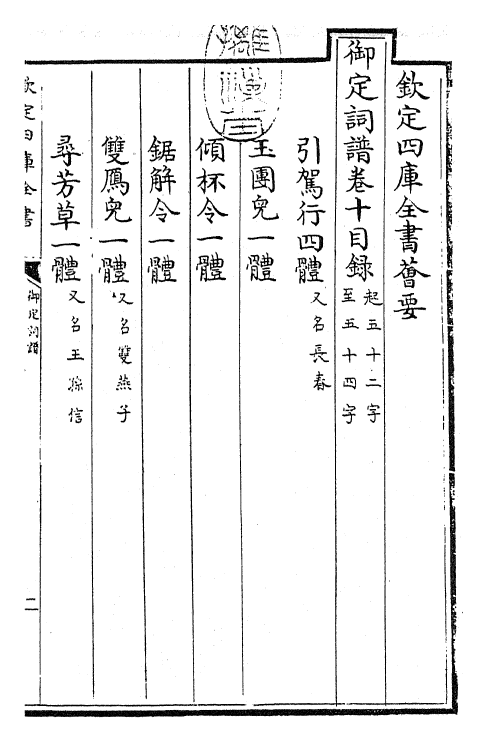 欽定四庫全書薈要
御定詞譜卷十目録 起五十二字 至五十四字
引駕行四體 又名長春
玉團兒一體
傾杯令一體
鋸解令一體
雙鴈兒一體 又名雙燕子
尋芳草一體 又名王孫信
欽定四庫全書
御定詞譜
二